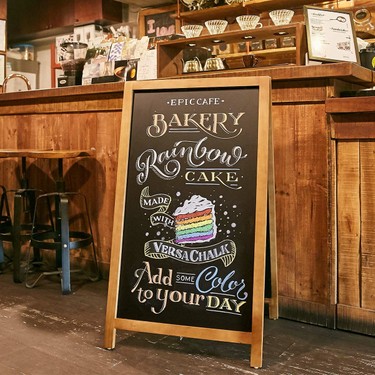 • EPIC CAFE •
BAKERY
Rainbow
CAKE
MADE
WITH
VERSACHALK
Add SOME Color
to your DAY